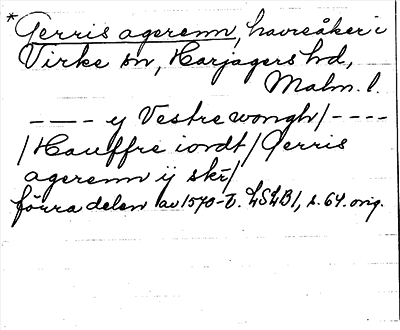 *Gerris agerenn, havreåker i
Virke sn, Harjagers hd,
Malm. l.
---- ij Vestre wongh/ ----
/Hauffre iordt/Gerris
agerenn ij skr/
förra delen av 1570-t. LSLB1, s. 64. orig.